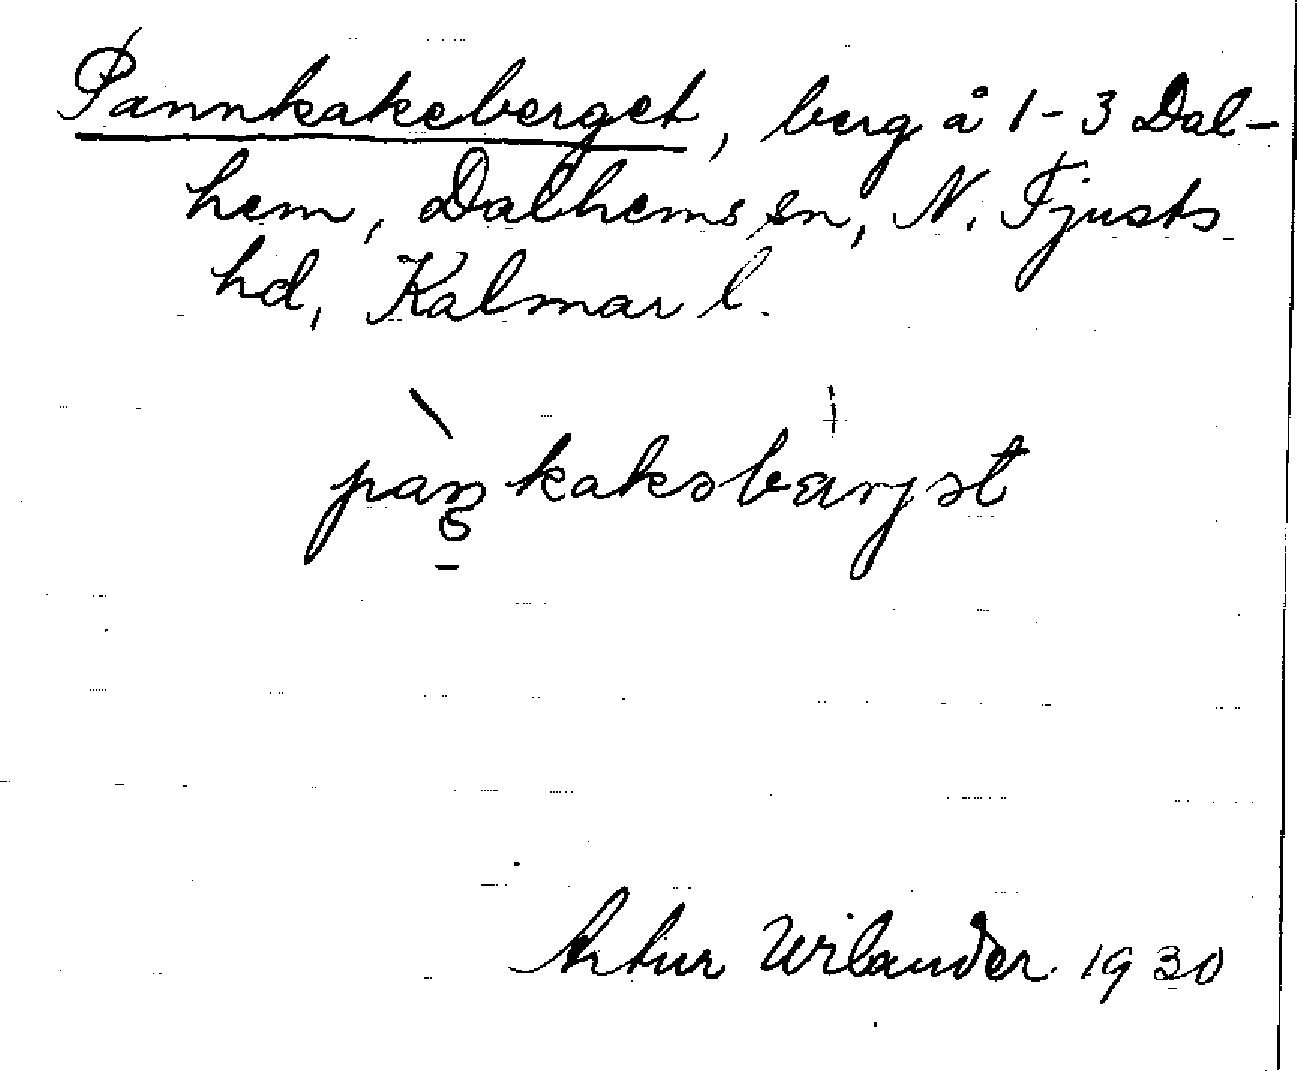 Pannkakeberget, berg å 1-3 Dal-
hem, Dalhems sn, N. Tjusts
hd, Kalmar l.
Artur Wilander 1930